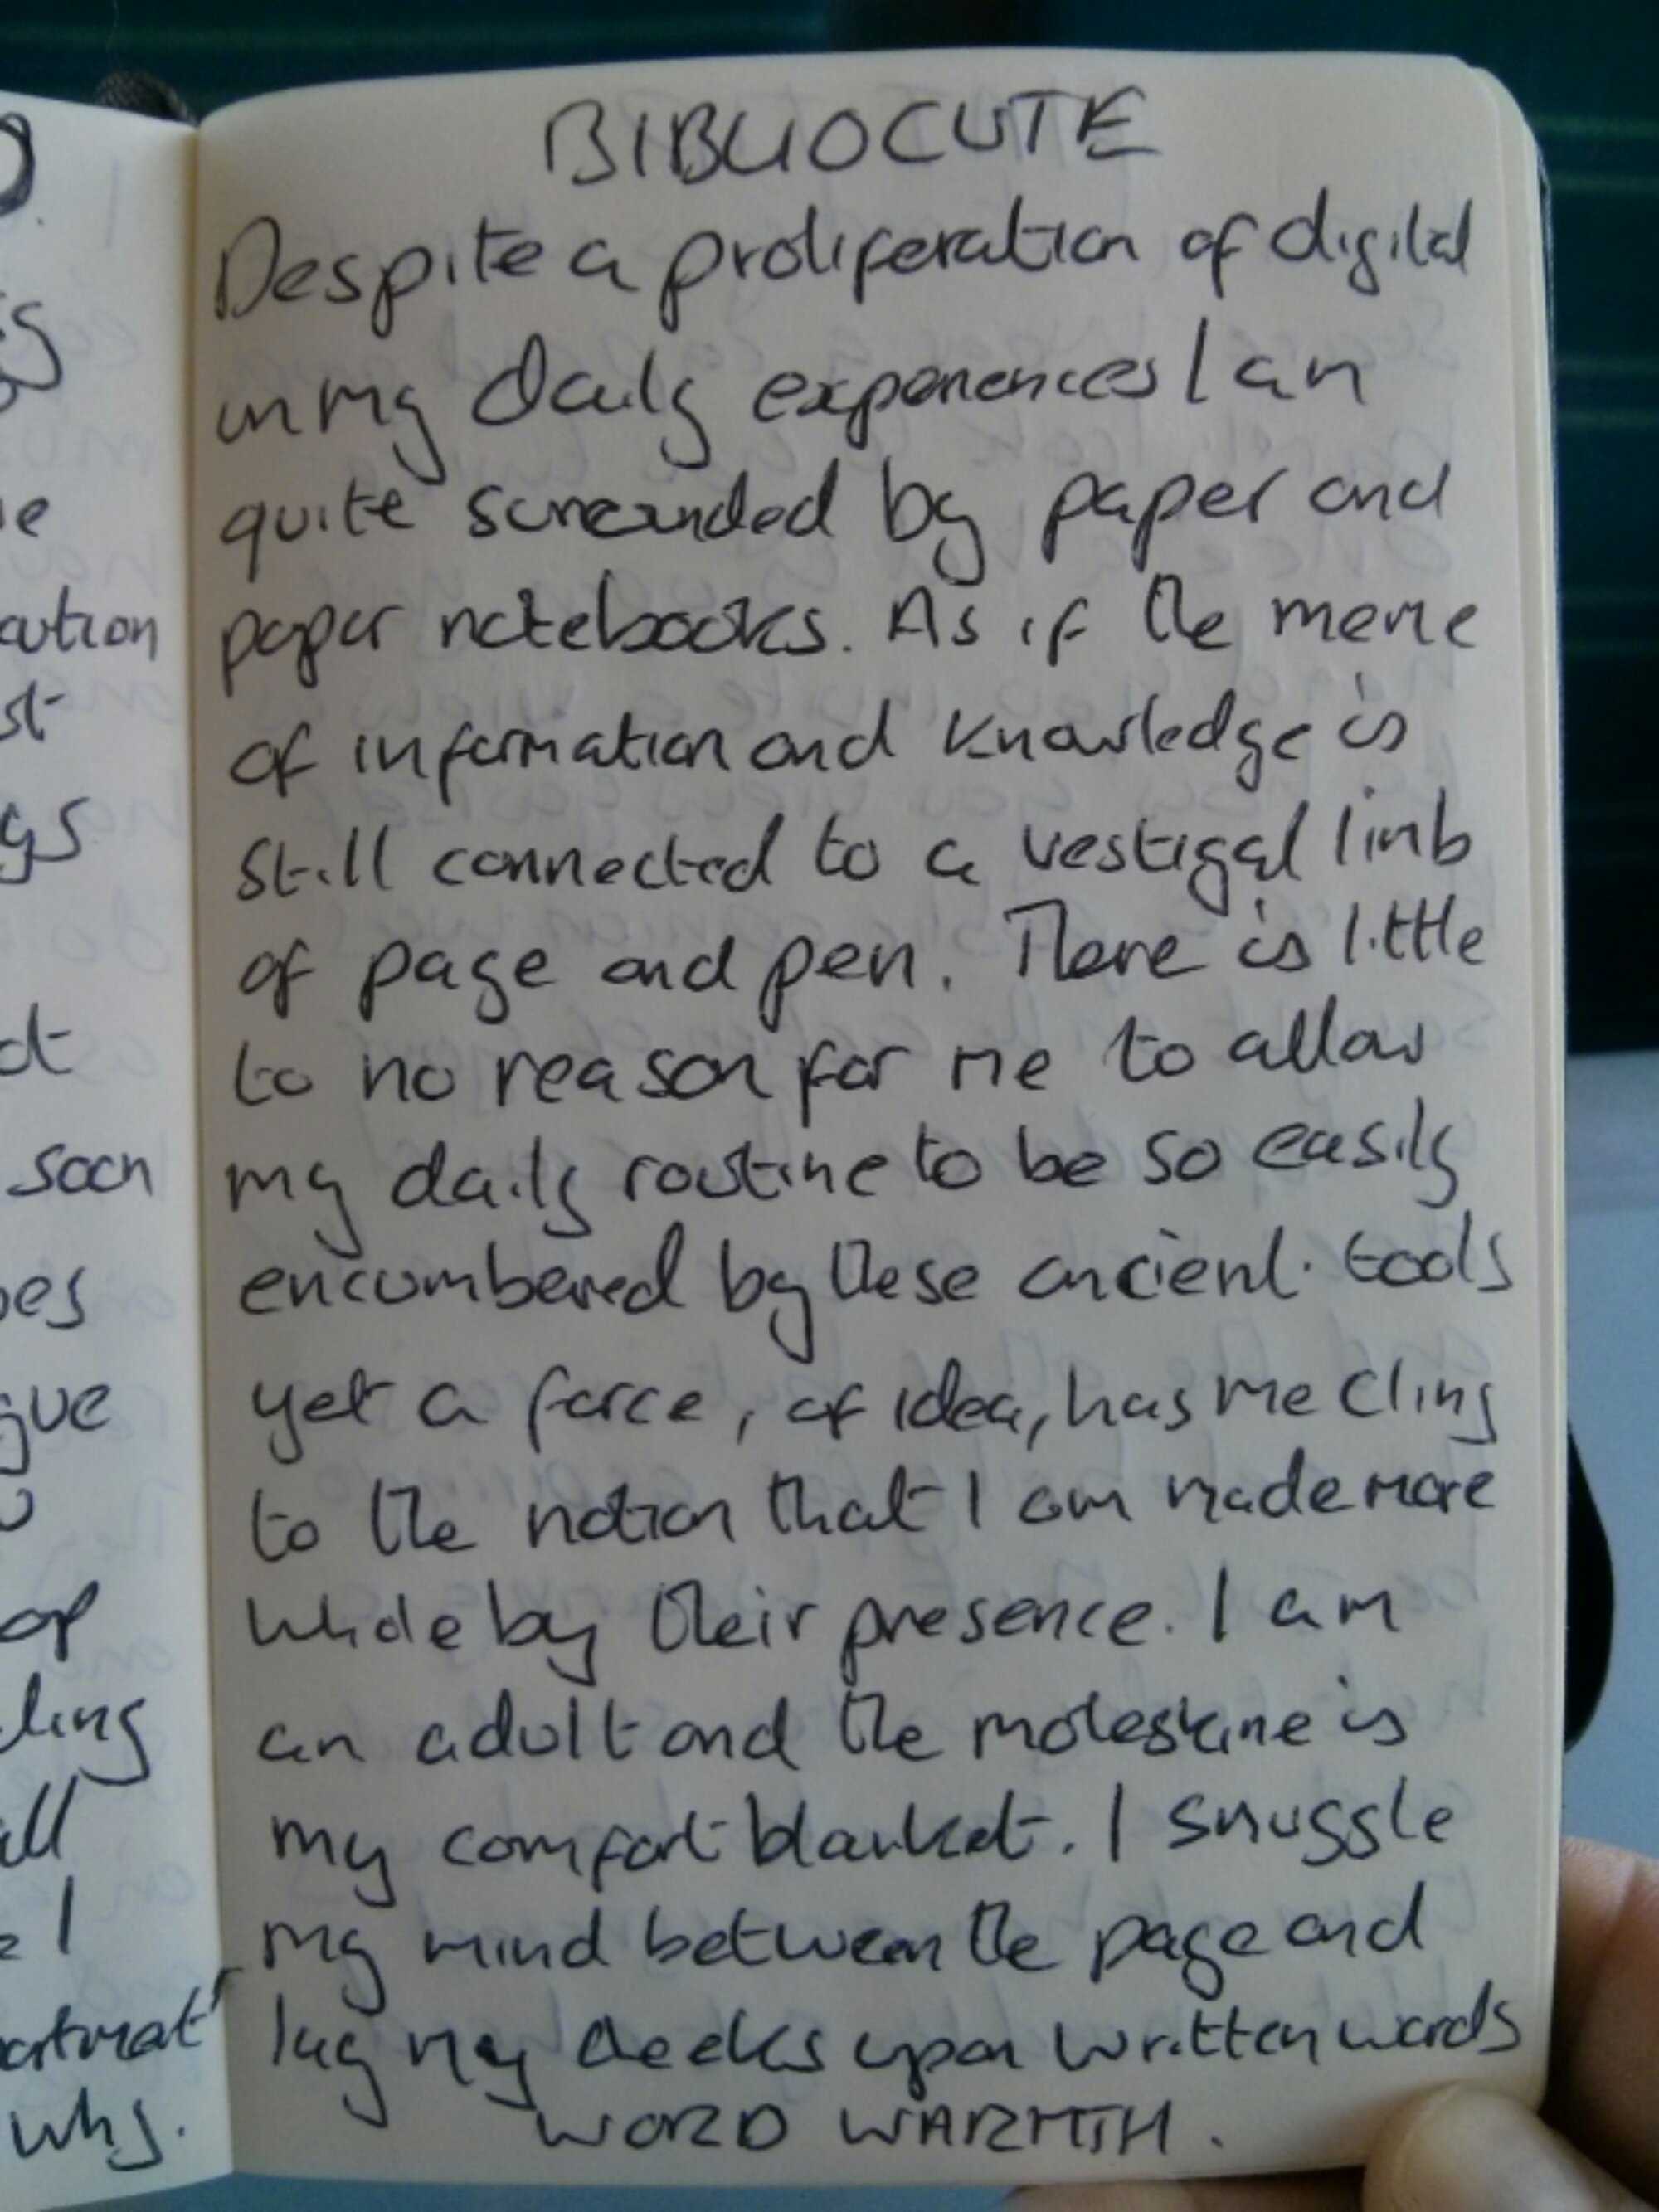 BIBLIOCUTE
Despite a proliferation of digital
in my daily experiences I am
quite surrounded by paper and
paper notebooks. As if the meme
of information and knowledge is
still connected to a vestigal limb
of page and pen. There is little
to no reason for me to allow
my daily routine to be so easily
encumbered by these ancient tools
yet a force, of idea, has me cling
to the notion that I am made more
whole by their presence. I am
an adult and the moleskine is
my comfort blanket. I snuggle
my mind between the page and
lay my cheeks upon written words
WORD WARMTH.
ution
st
gs
soon
gue
op
ling
all
I
why.